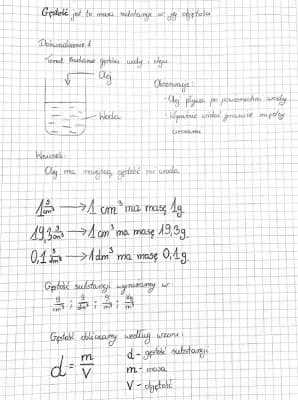 Gęstość jest to masa substancji w jej objętości
Doświadczenie 1
Temat: Badanie gęstości wody i oleju
Olej
Obserwacje:
Olej pływa po powierzchni wody
Wyraźnie widać granice między
cieczami
Woda
Wniosek:
Olej ma mniejszą gęstość niż woda.
1 g/cm³ → 1 cm³ ma masę 1g.
19,3 g/cm³ → 1 cm³ ma masę 19,3g.
0,1 g/dm³ → 1 dm³ ma masę 0,1g.
Gęstość substancji wyrażamy w
Gęstość obliczamy według wzoru:
d = m/V
d - gęstość substancji
m - masa
V - objętość